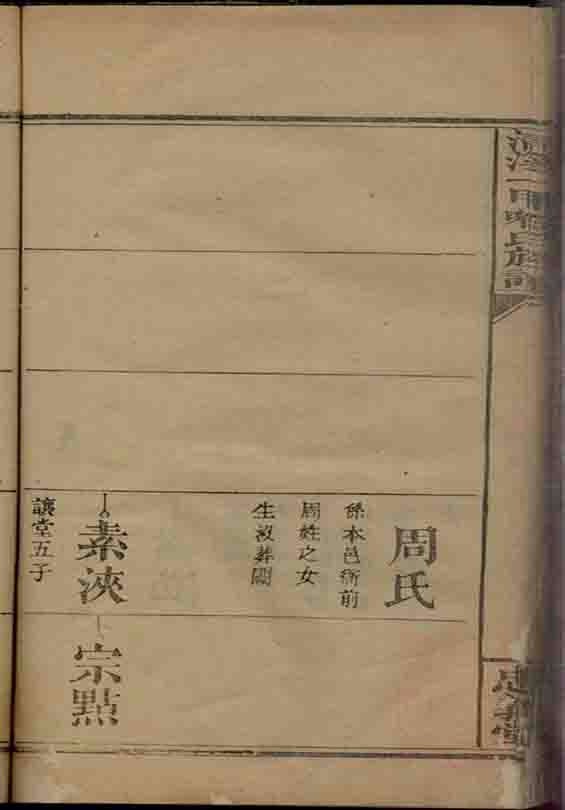 周氏
係本邑衙前
周姓之女
生歿葬闕
素浹
讓堂五子
宗點
氏族
堂